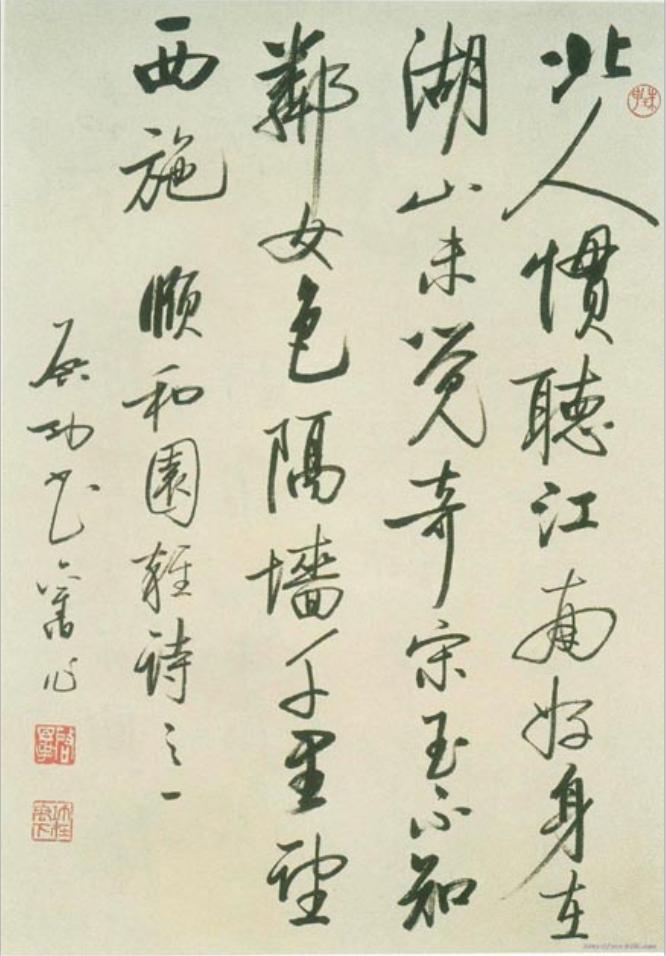 北人慣聽江南好身在
湖山未覺奇宋玉不知
鄰女色隔墻千里望
西施 頤和園雜詩之一
啟功書舊作